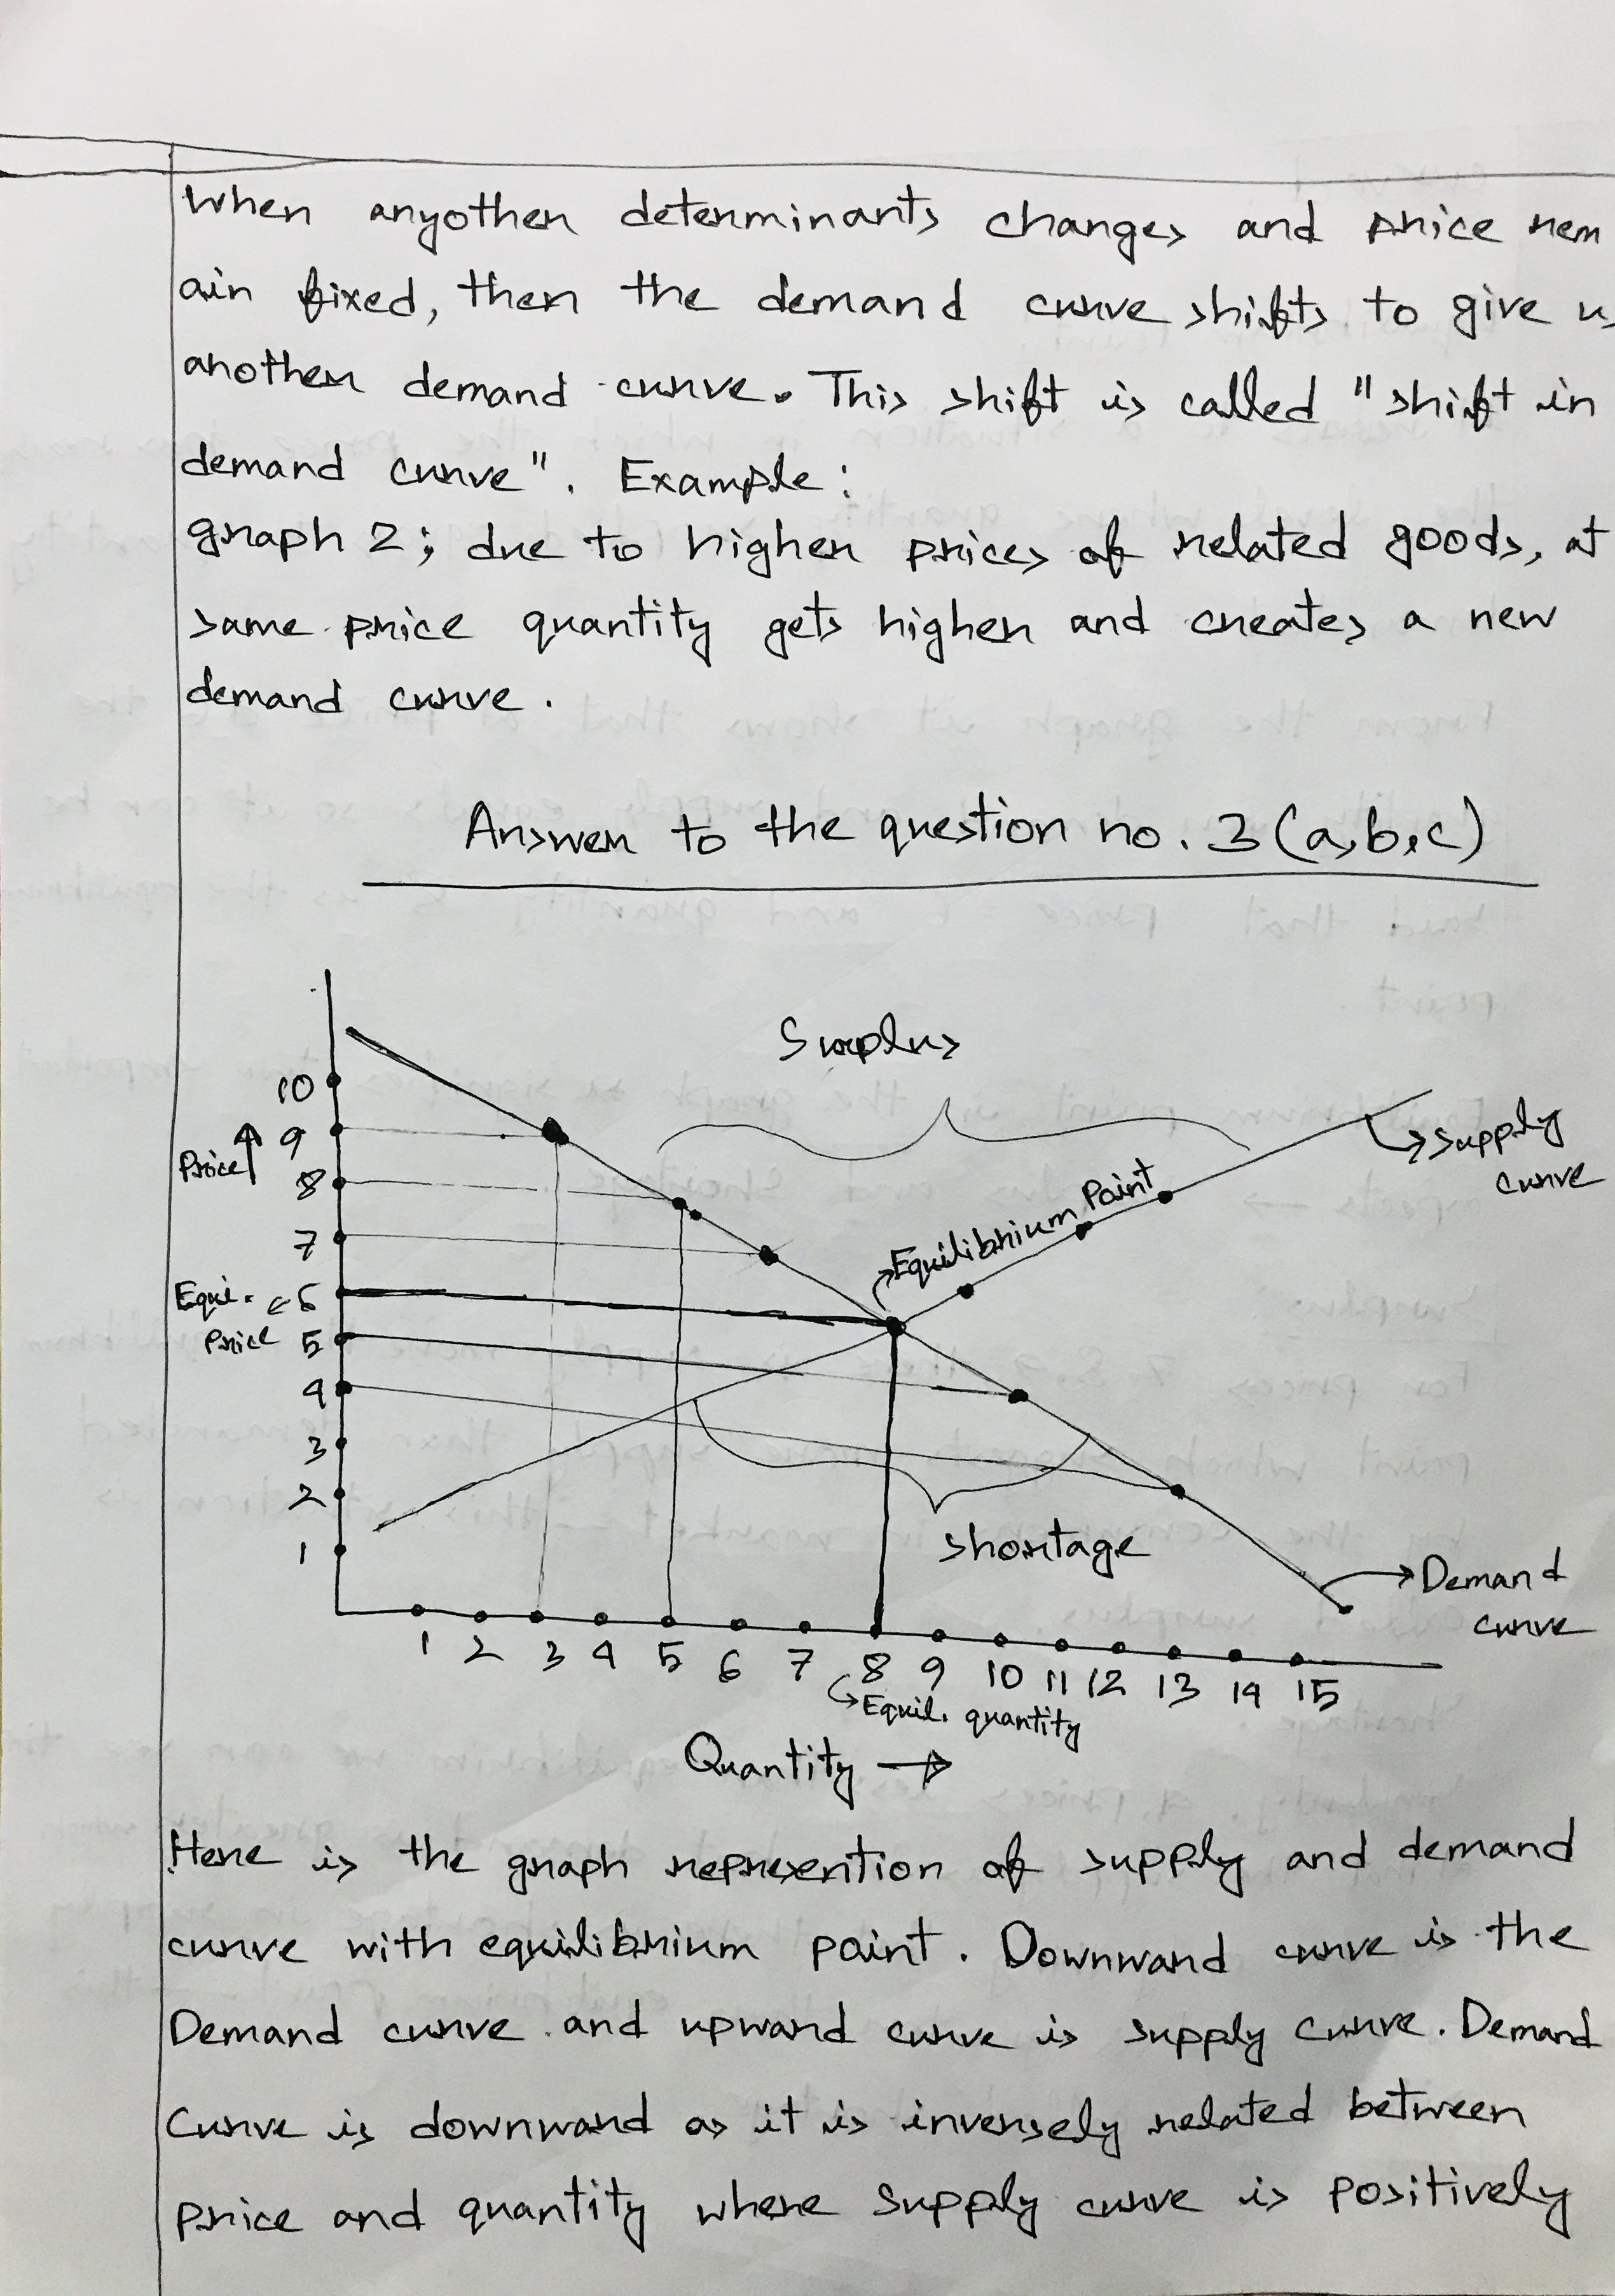 When anyother determinants changes and price rem
ain fixed, then the demand curve shifts to give us
another demand curve. This shift is called "shift in
demand curve". Example:
graph 2; due to higher prices of related goods, at
same price quantity gets higher and creates a new
demand curve.
Answer to the question no. 3 (a,b,c)
Surplus
10
9
Price
8
7
Equi.
Price
6
5
4
3
2
1
Supply
curve
Equilibrium Point
Shortage
Demand
curve
1 2 3 4 5 6 7 8 9 10 11 12 13 14 15
Equil. quantity
Quantity →
Here is the graph represention of supply and demand
curve with equilibrium point. Downward curve is the
Demand curve and upward curve is supply curve. Demand
Curve is downward as it is inversely related between
price and quantity where supply curve is positively